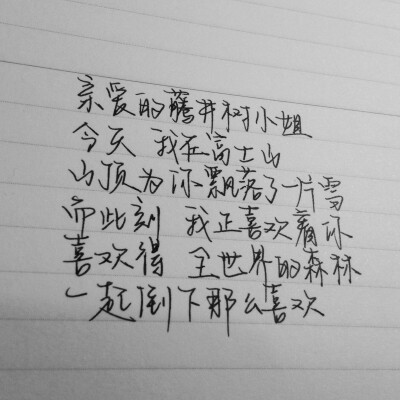 亲爱的藤井树小姐
今天 我在富士山
山顶为你飘落了一片雪
而此刻 我正喜欢着你
喜欢得 全世界的森林
一起倒下那么喜欢